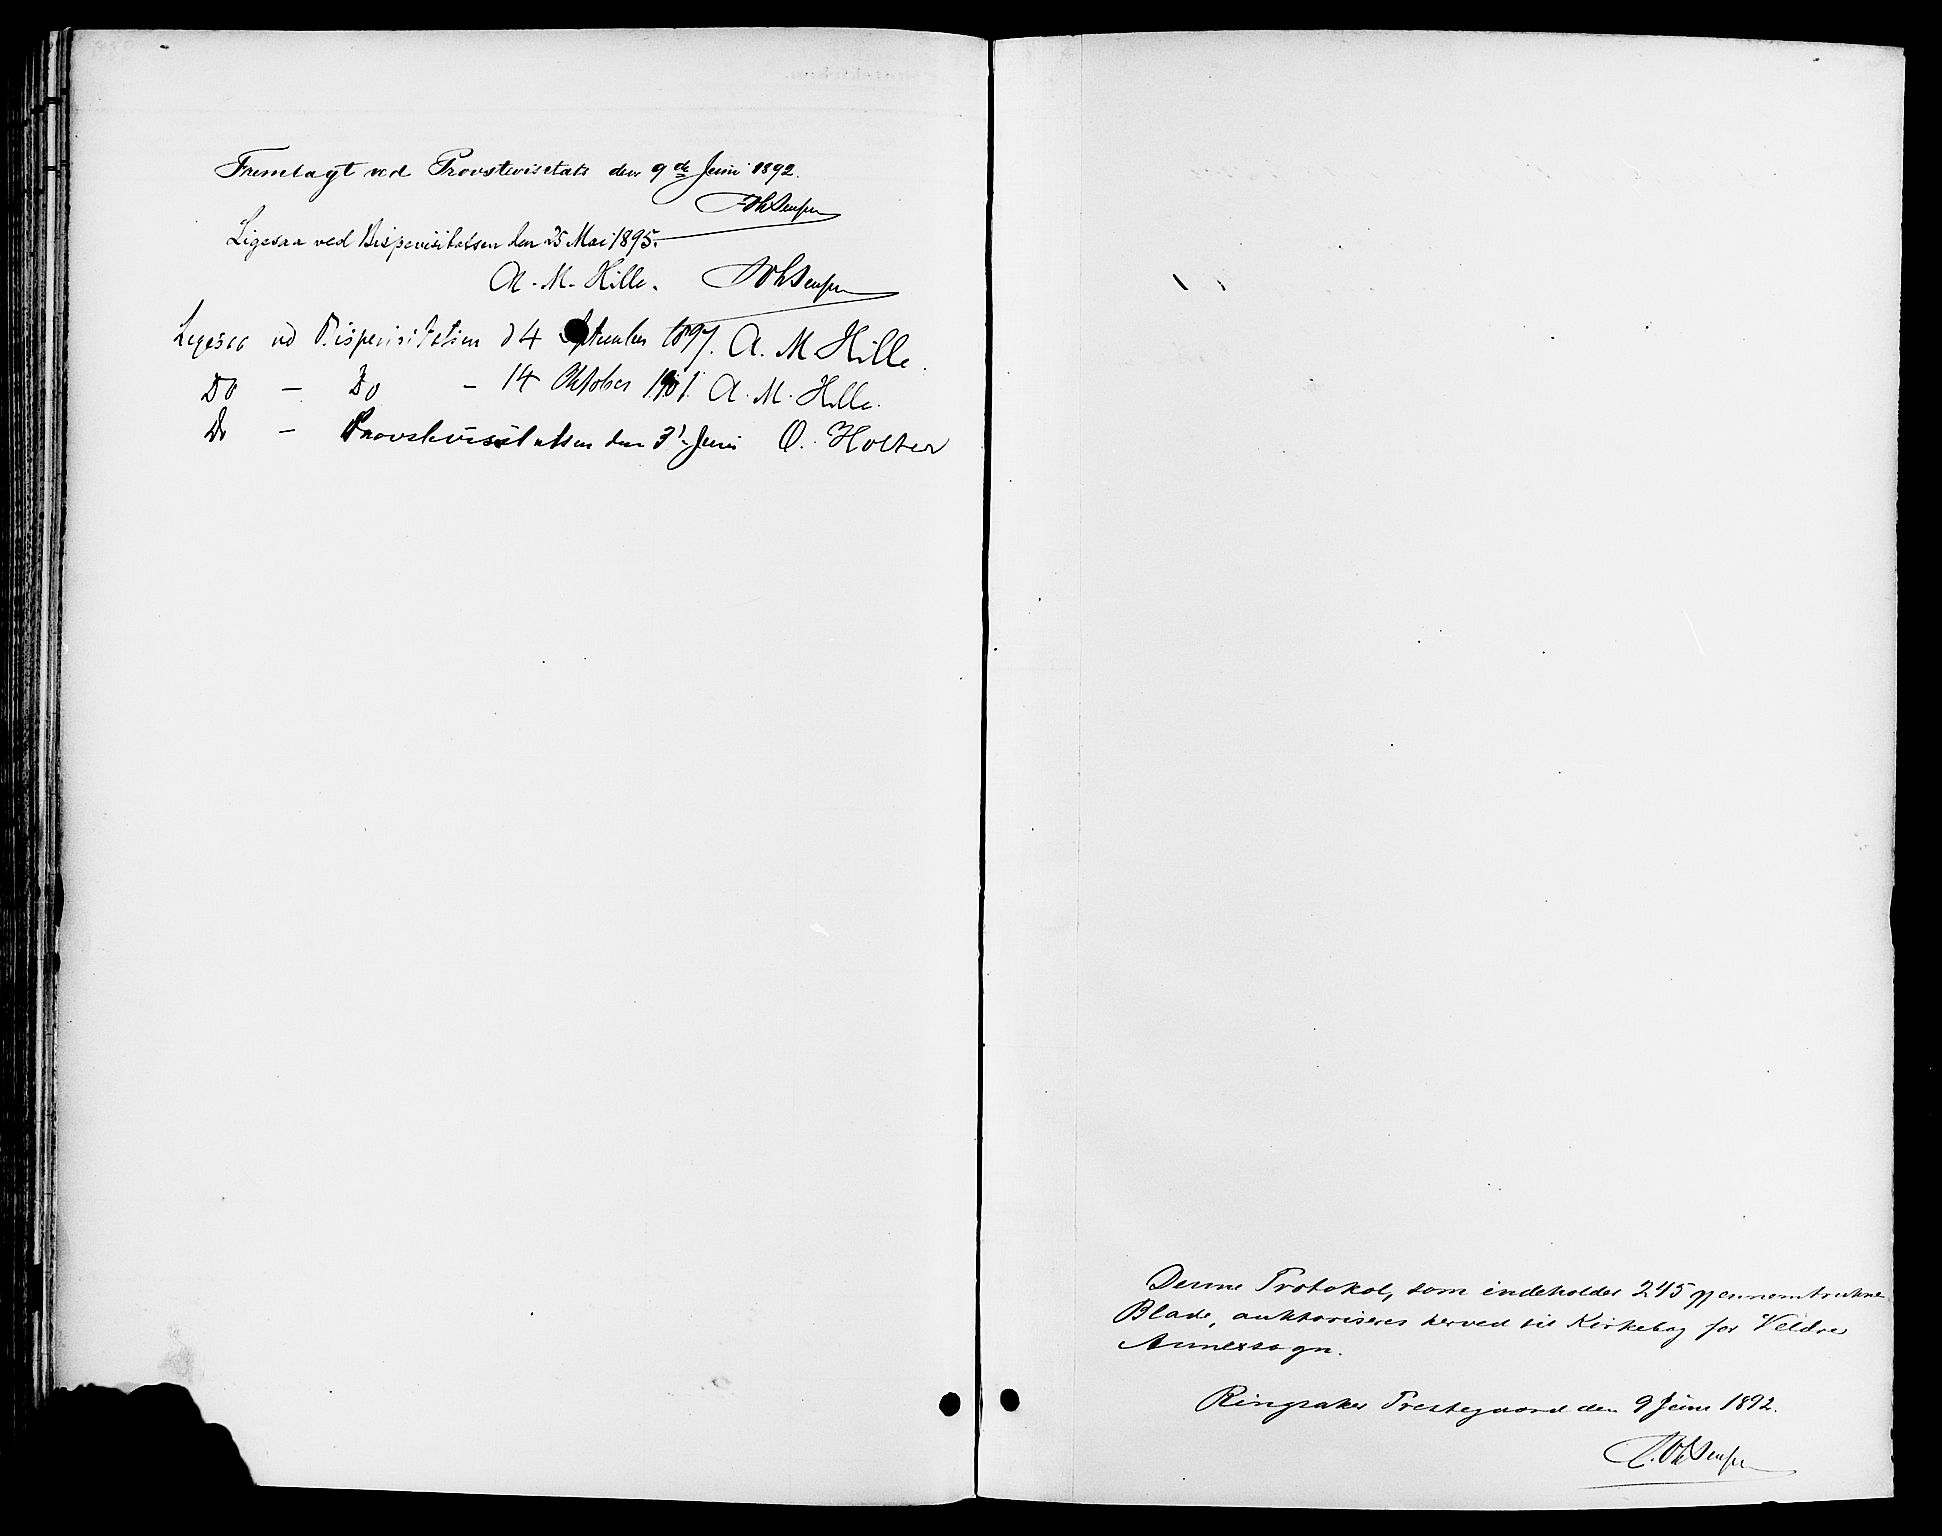 Fremlagt ved Provstevisitats den 9de Juni 1892.
Ligesaa ved Bispevisitatsen den 25 Mai 1895.
A. M. Hille.
Ligesaa ved Bispevisitatsen d 4 September 1897. A. M Hille.
Do - Do - 14 Oktober 1901. A. M. Hille.
Do - Provstevisitatsen den 3' Juni O. Holter
Denne Protokol, som indeholder 245 gjennemtrukne
Blade, auktoriseres herved til Kirkebog for Veldre
Annexsogn.
Ringsaker Prestegaard den 9 Juni 1892.